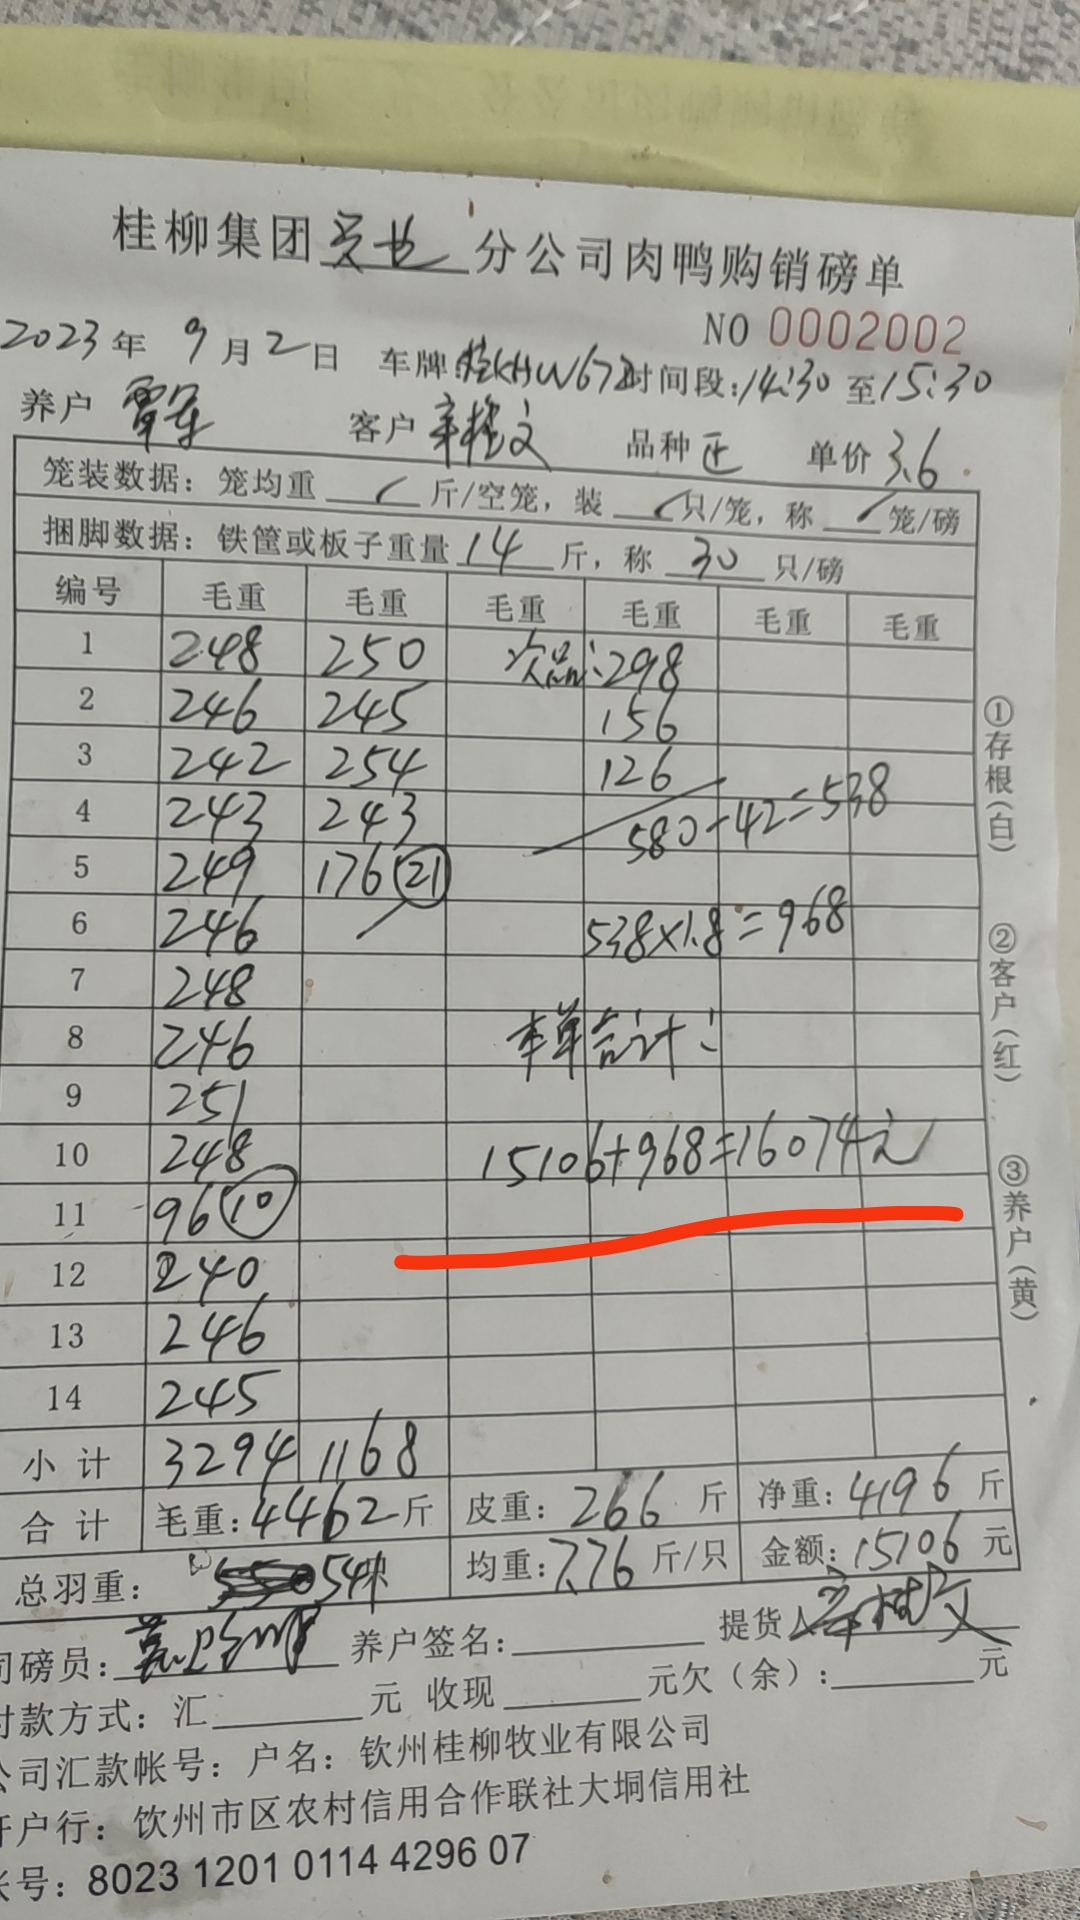 桂柳集团 分公司肉鸭购销磅单
NO 0002002
2023年 9月2日 车牌: 时间段:14:30至15:30
养户 覃 客户 品种 正 单价 3.6
笼装数据: 笼均重 / 斤/空笼, 装 / 只/笼, 称 / 笼/磅
捆脚数据: 铁筐或板子重量 14 斤, 称 30 只/磅
编号 毛重 毛重 毛重 毛重 毛重 毛重
1 248 250 次品: 298
2 246 245 156
3 242 254 126
4 243 243 580-42=538
5 249 176 (21)
6 246 538×1.8=968
7 248
8 246 本单合计:
9 251
10 248 15106+968=16074元
11 96 (10)
12 240
13 246
14 245
小计 3294 1168
合计 毛重:4462斤 皮重: 266 斤 净重: 4196 斤
总羽重: 均重:7.76 斤/只 金额: 15106 元
司磅员: 养户签名: 提货人
付款方式: 汇 元 收现 元欠(余): 元
公司汇款帐号: 户名: 钦州桂柳牧业有限公司
开户行: 钦州市区农村信用合作联社大垌信用社
帐号: 8023 1201 0114 4296 07
①存根(白)
②客户(红)
③养户(黄)